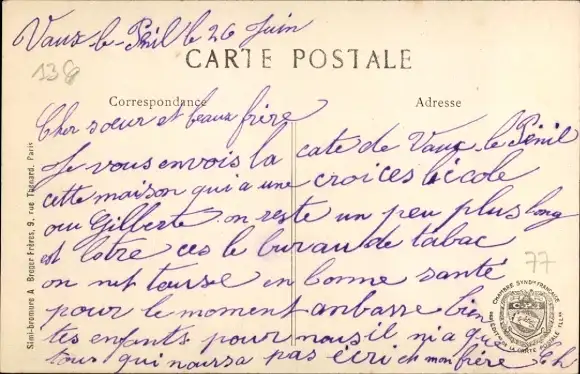 Vaux-le-Pénil le 26 Juin
CARTE POSTALE
138
Correspondance
Adresse
Cher sœur et beaux frère
Je vous envois la cate de Vaux-le-Pénil
cette maison qui a une croi ces lécole
ou Gilberte on reste un peu plus long
est lotre ces le burau de tabac
on nut tousse en bonne santé
pour le moment anbasse bien
tes enfants pour nous il ni a que
tous qui nassa pas écri ch mon frère
77
Simi-bromure A. Breger Frères, 9, rue Thénard, Paris
CHAMBRE SYND<sup>le</sup> FRANÇAISE
LA CARTE POSTALE ILL<sup>ée</sup>